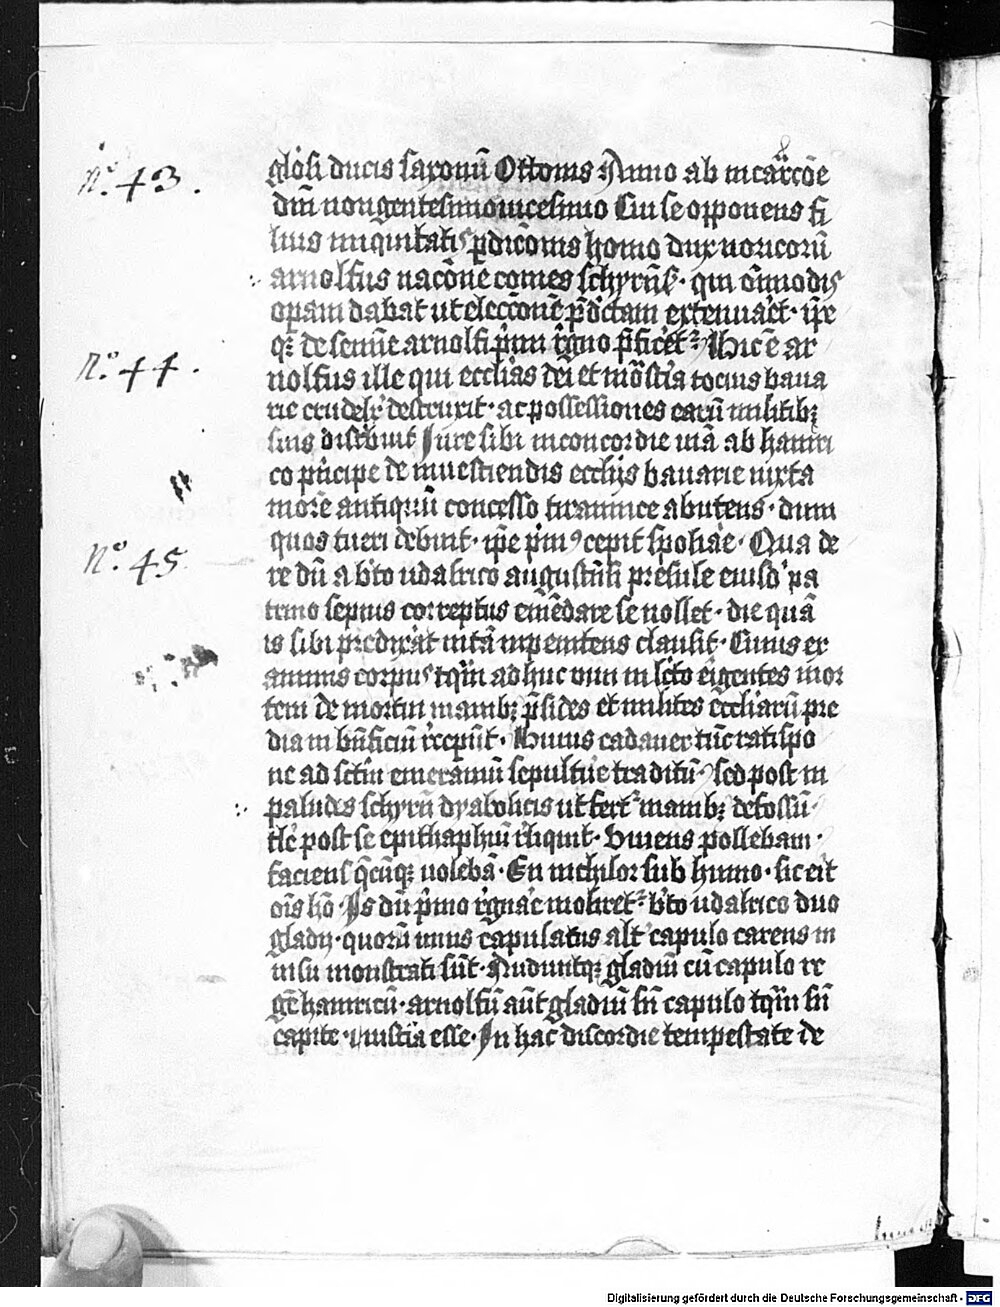 N.º 43.
glōsi ducis saxonū Ottonis Anno ab incarcōe
dm̄ nongentesimo vicesimo Cui se opponens fi
lius iniquitatis p̲dicōnis homo dux noricorū
arnolfus nacōne comes schyrn̄s · qui om̄modis
op̲am dabat ut eleccōnē p̄dc̄tam extenuaret · ip̄e
qꝫ de semīe arnolfi p̲rimi
N.º 44.
nolfus ille qui ecclīas dei et mōstīa tocius baua
rie crudelr̄ destruxit · ac possessiones earū militibꝫ
suis distbuit Jure sibi in concordie uīa ab hainri
co prīncipe de inuestiendis eccliis bauarie iuxta
morē antiquū concesso tirannice abutens · dum
quos tueri debuit · ip̄e prīmꝰ cepit spoliare · Qua de
N.º 45.
re dū a bto udalrico augustn̄si presule eiusdē pa
trino sepius correptus emēdare se nollet · die quā
is sibi predixerat uitā inpenitens clausit · Cuius ex
animis corpus tq̄m adhuc uiui in lc̄to eigentes mor
tem de mortui manibꝫ p̄sides et milites eccliarū pre
dia in bn̄ficiū recep̲ūt · Huius cadauer tūc ratispo
ne ad sctm̄ emeramū sepulture traditū · sed post in
paludes schyrn̄ dyabolicis ut fertur manibꝫ defossū ·
tle post se epithaphiū reliquit · Viuens pollebam ·
faciens q̄cūqꝫ uolebā · En nichilor sub humo · sic erit
om̄is hō · Is dū primo regnare moliretur bto udalrico duo
gladii · quorū unus capulatus alter capulo carens in
uisu monstrati sūt · Audiuitqꝫ gladiū cū capulo re
gē hainricū · arnolfū aūt gladiū sn̄ capulo tq̄m sn̄
capite · iniustīa esse · In hac discordie tempestate de
Digitalisierung gefördert durch die Deutsche Forschungsgemeinschaft - DFG